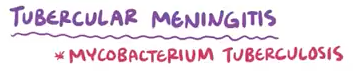 TUBERCULAR MENINGITIS
* MYCOBACTERIUM TUBERCULOSIS